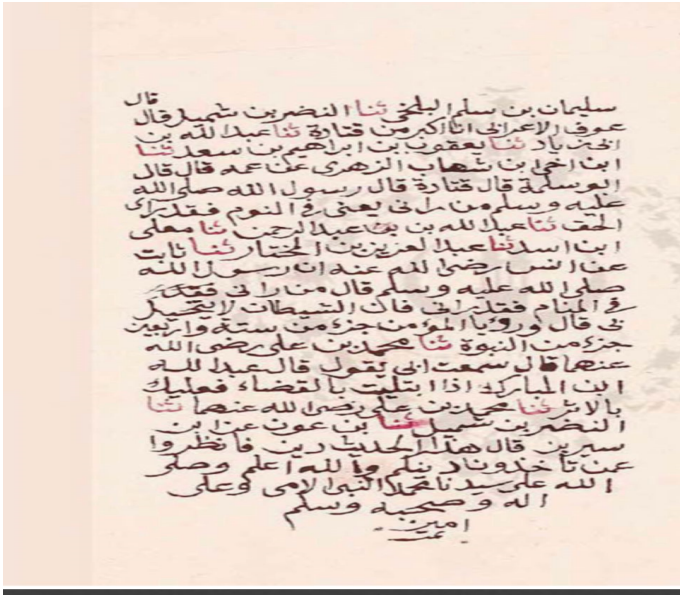 قال
سليمان بن سلم البلخي ثنا النضر بن شميل قال
عوف الاعرابي انا اكبر من قتادة ثنا عبد الله بن
ابي زياد ثنا يعقوب بن ابراهيم بن سعد ثنا
ابن اخي ابن شهاب الزهري عن عمه قال قال
ابو سلمة قال قتادة قال رسول الله صلى الله
عليه وسلم من راني يعني في النوم فقد راى
الحق ثنا عبد الله بن عبد الرحمن ثنا معلى
ابن اسد ثنا عبد العزيز بن المختار ثنا ثابت
عن انس رضي الله عنه ان رسول الله
صلى الله عليه وسلم قال من راني فقد
في المنام فقد راني فان الشيطان لا يتخيل
بي قال ورؤيا المؤمن جزء من ستة واربعين
جزء من النبوة ثنا محمد بن علي رضي الله
عنهما قال سمعت ابي يقول قال عبد الله
ابن المبارك اذا ابتليت بالقضاء فعليك
بالاثر ثنا محمد بن علي رضي الله عنهما ثنا
النضر بن شميل ثنا بن عون عن ابن
سيرين قال هذا الحديث دين فانظروا
عمن تأخذون دينكم والله اعلم وصلى
الله على سيدنا محمد النبي الامي وعلى
اله وصحبه وسلم
امين
تمت